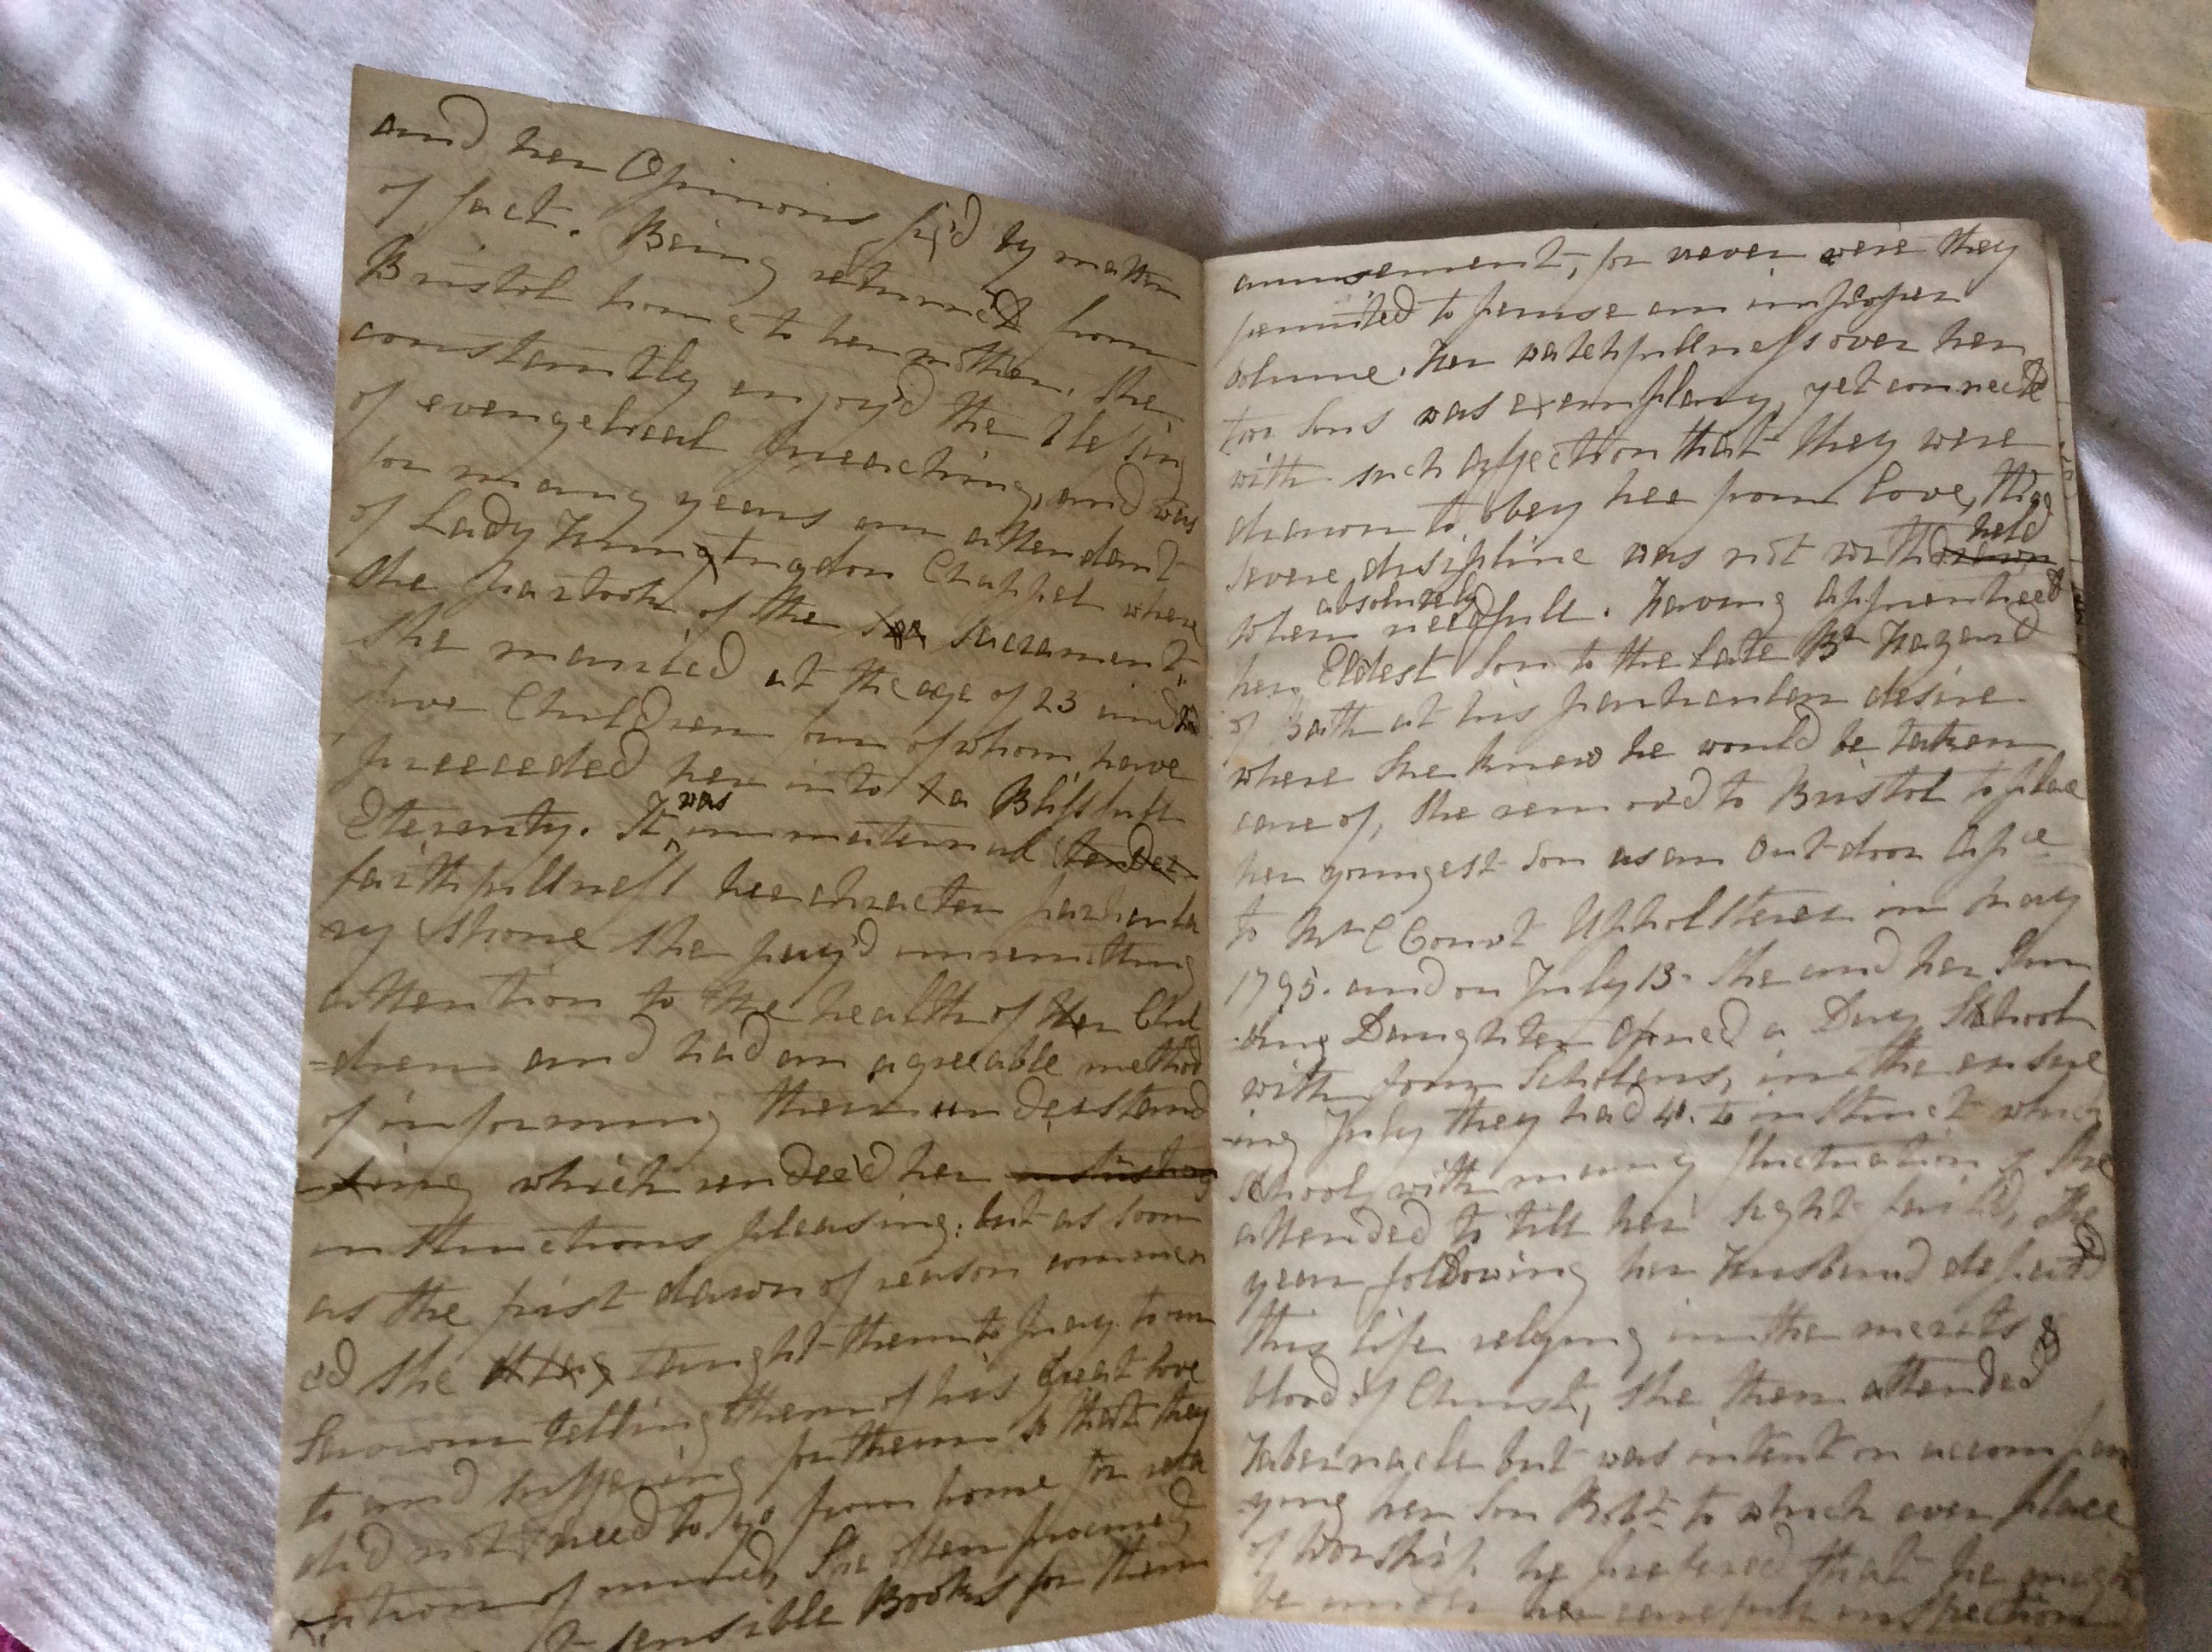 and her Opinions fix'd by matter
of fact. Being returned from
Bristol home to her mother. She
constantly enjoy'd the blessing
of evengelical preaching, and was
for many years an attendant
of Lady Huntingdon Chappel where
she partook of the Sacrament.
She married at the age of 23 and had
five Children four of whom have
preeceded her into a Blissfull
Eternity. It was in maternal tender
faithfullness her character particula
ry shone she pay'd unremitting
attention to the health of her Chil
-dren and had an agreeable method
of informing their understand
-ing which rendeed her
instructions pleasing: but as soon
as the first dawn of reason commen
ed she taught them to pray to our
Saviour telling them of his great love
to and suffering for them so that they
did not need to go from home for rela
xation of mind, She often procured
sensible Books for them
amusement, for never were they
permited to peruse an improper
volume. Her watchfullness over her
two Sons was exemplary, yet connected
with such affection that they were
drawn to obey her from love, tho
severe disipline was not withdrawn held
when absolutely needfull. Having apprenticed
her Eldest Son to the late Br Hazard
of Bath at his particular desire
where she knew he would be taken
care of, she remov'd to Bristol to place
her youngest Son as an Out-door App ce
to Mr C Court Upholsterer in May
1795. and on July 13. she and her
Daughter Opned a Day School
with four Scholars, in the ensue
-ing July they had 41. to instruct which
School with many fluctuations she
attended to till her sight fail'd, The
year following her Husband departed
this life relying in the merits &
blood of Christ, she then attended
Tabernacle but was intent on accompan
-ying her Son Robt to which ever place
of Worship he prefered that he might
be under her carefull inspection